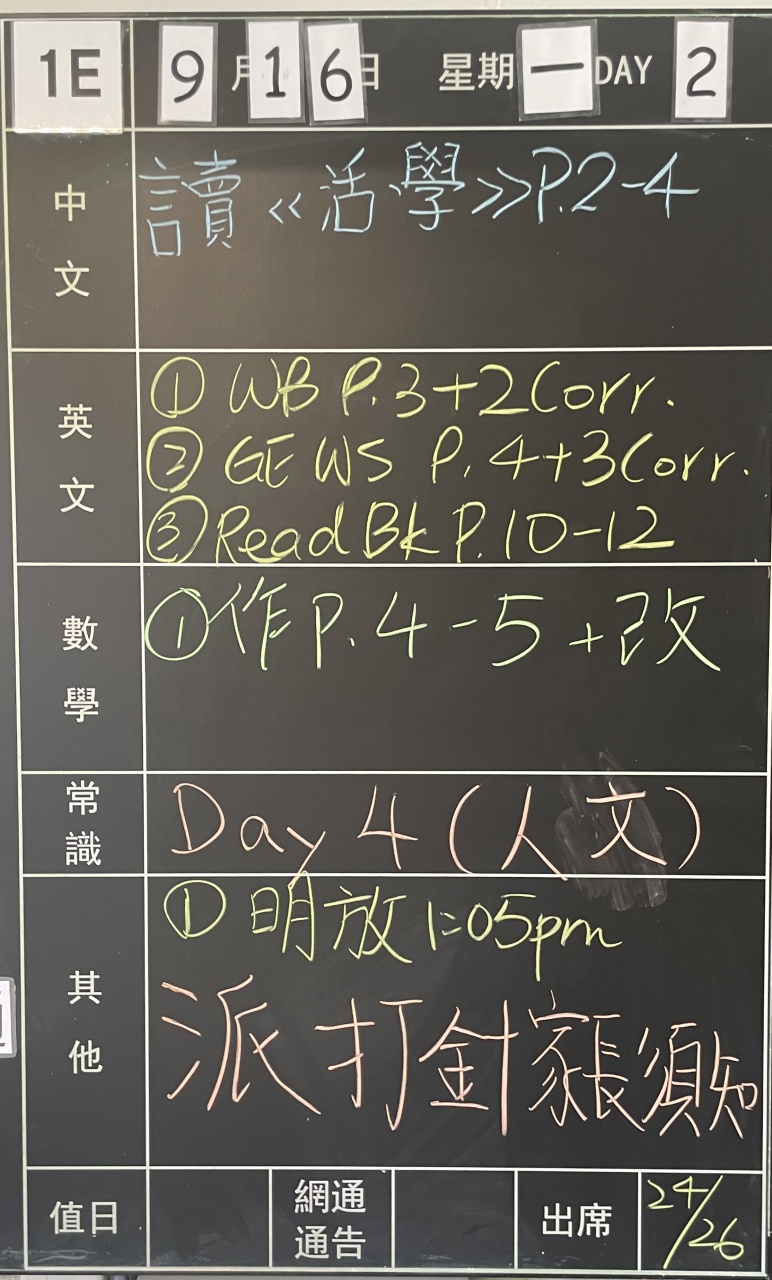 1E 9月16日 星期一 DAY 2
中文
讀《活學》P.2-4
英文
① WB P.3+2 Corr.
② GE WS P.4+3 Corr.
③ Read Bk P.10-12
數學
① 作P.4-5+改
常識
Day 4 (人文)
其他
① 明放1:05pm
派打針家長須知
值日 網通通告 出席 24/26